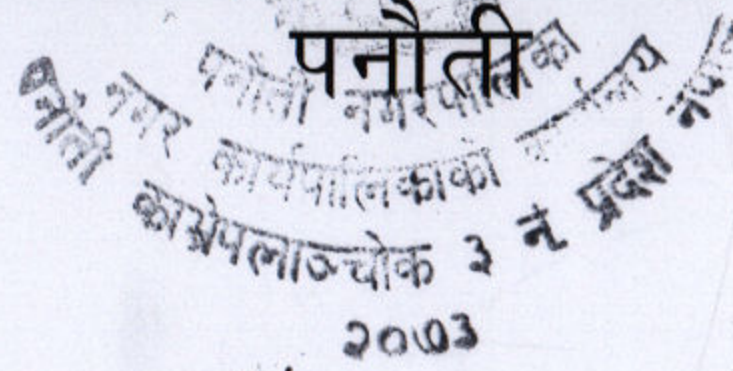 पनौती
पनौती नगरपालिका
नगर कार्यपालिकाको कार्यालय
पनौती काभ्रेपलाञ्चोक ३ नं प्रदेश नेपाल
२०७३